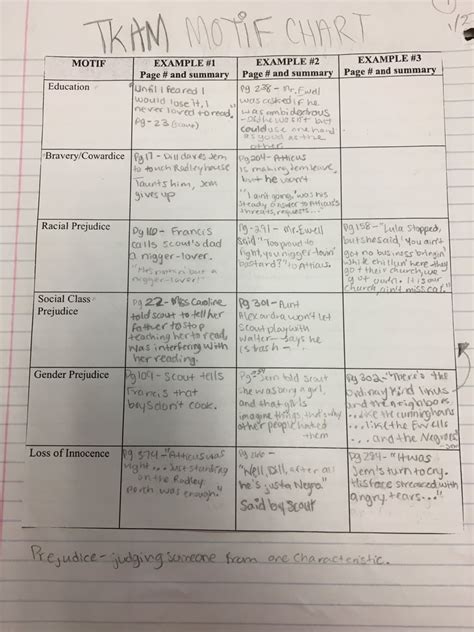 TKAM MOTIF CHART
1/2
MOTIF
EXAMPLE #1
Page # and summary
EXAMPLE #2
Page # and summary
EXAMPLE #3
Page # and summary
Education
"Until I feared I
would lose it, I
never loved to read."
Pg-23 (Scout)
Pg 238 - Mr. Ewell
was asked if he
was ambidextrous
could use one hand
as good as the
other
Bravery/Cowardice
Pg 17 - Dill dares Jem
to touch Radley house
Taunts him, Jem
gives up
Pg 204 - Atticus
is making Jem leave,
but he won't
"I ain't going," was his
steady answer to Atticus's
threats, requests...."
Racial Prejudice
Pg 110 - Francis
calls Scout's dad
a nigger-lover.
Pg - 291 - Mr. Ewell
said "Too proud to
fight, you nigger-lovin'
bastard?" to Atticus
Pg 158 - "Lula stopped,
but she said, 'You ain't
got no business bringin'
white chillun here they
got their church, we
got our'n. It is our
church, ain't it
Social Class
Prejudice
Pg 22 - Miss Caroline
told scout to tell her
father to stop
teaching her to read,
was interfering with
her reading.
Pg 301 - Aunt
Alexandra won't let
Scout play with
Walter - says he
is trash -
Gender Prejudice
Pg 109 - Scout tells
Francis that
boys don't cook.
Jem told scout
she was being a girl,
and that girls
imagine things, that's why
other people hated
them
Pg 302 - "There's the
ordinary kind like us
and the neighbors,
...like the Cunninghams
...like the Ewells
and the Negroes"
Loss of Innocence
Pg 374 - "Atticus was
right ... Just standing
on the Radley
porch was enough."
"Well, Dill, after all
he's just a Negro"
Said by Scout
Pg 284 - "It was
Jem's turn to cry.
His face streaked with
angry tears..."
Prejudice - judging someone from one characteristic.